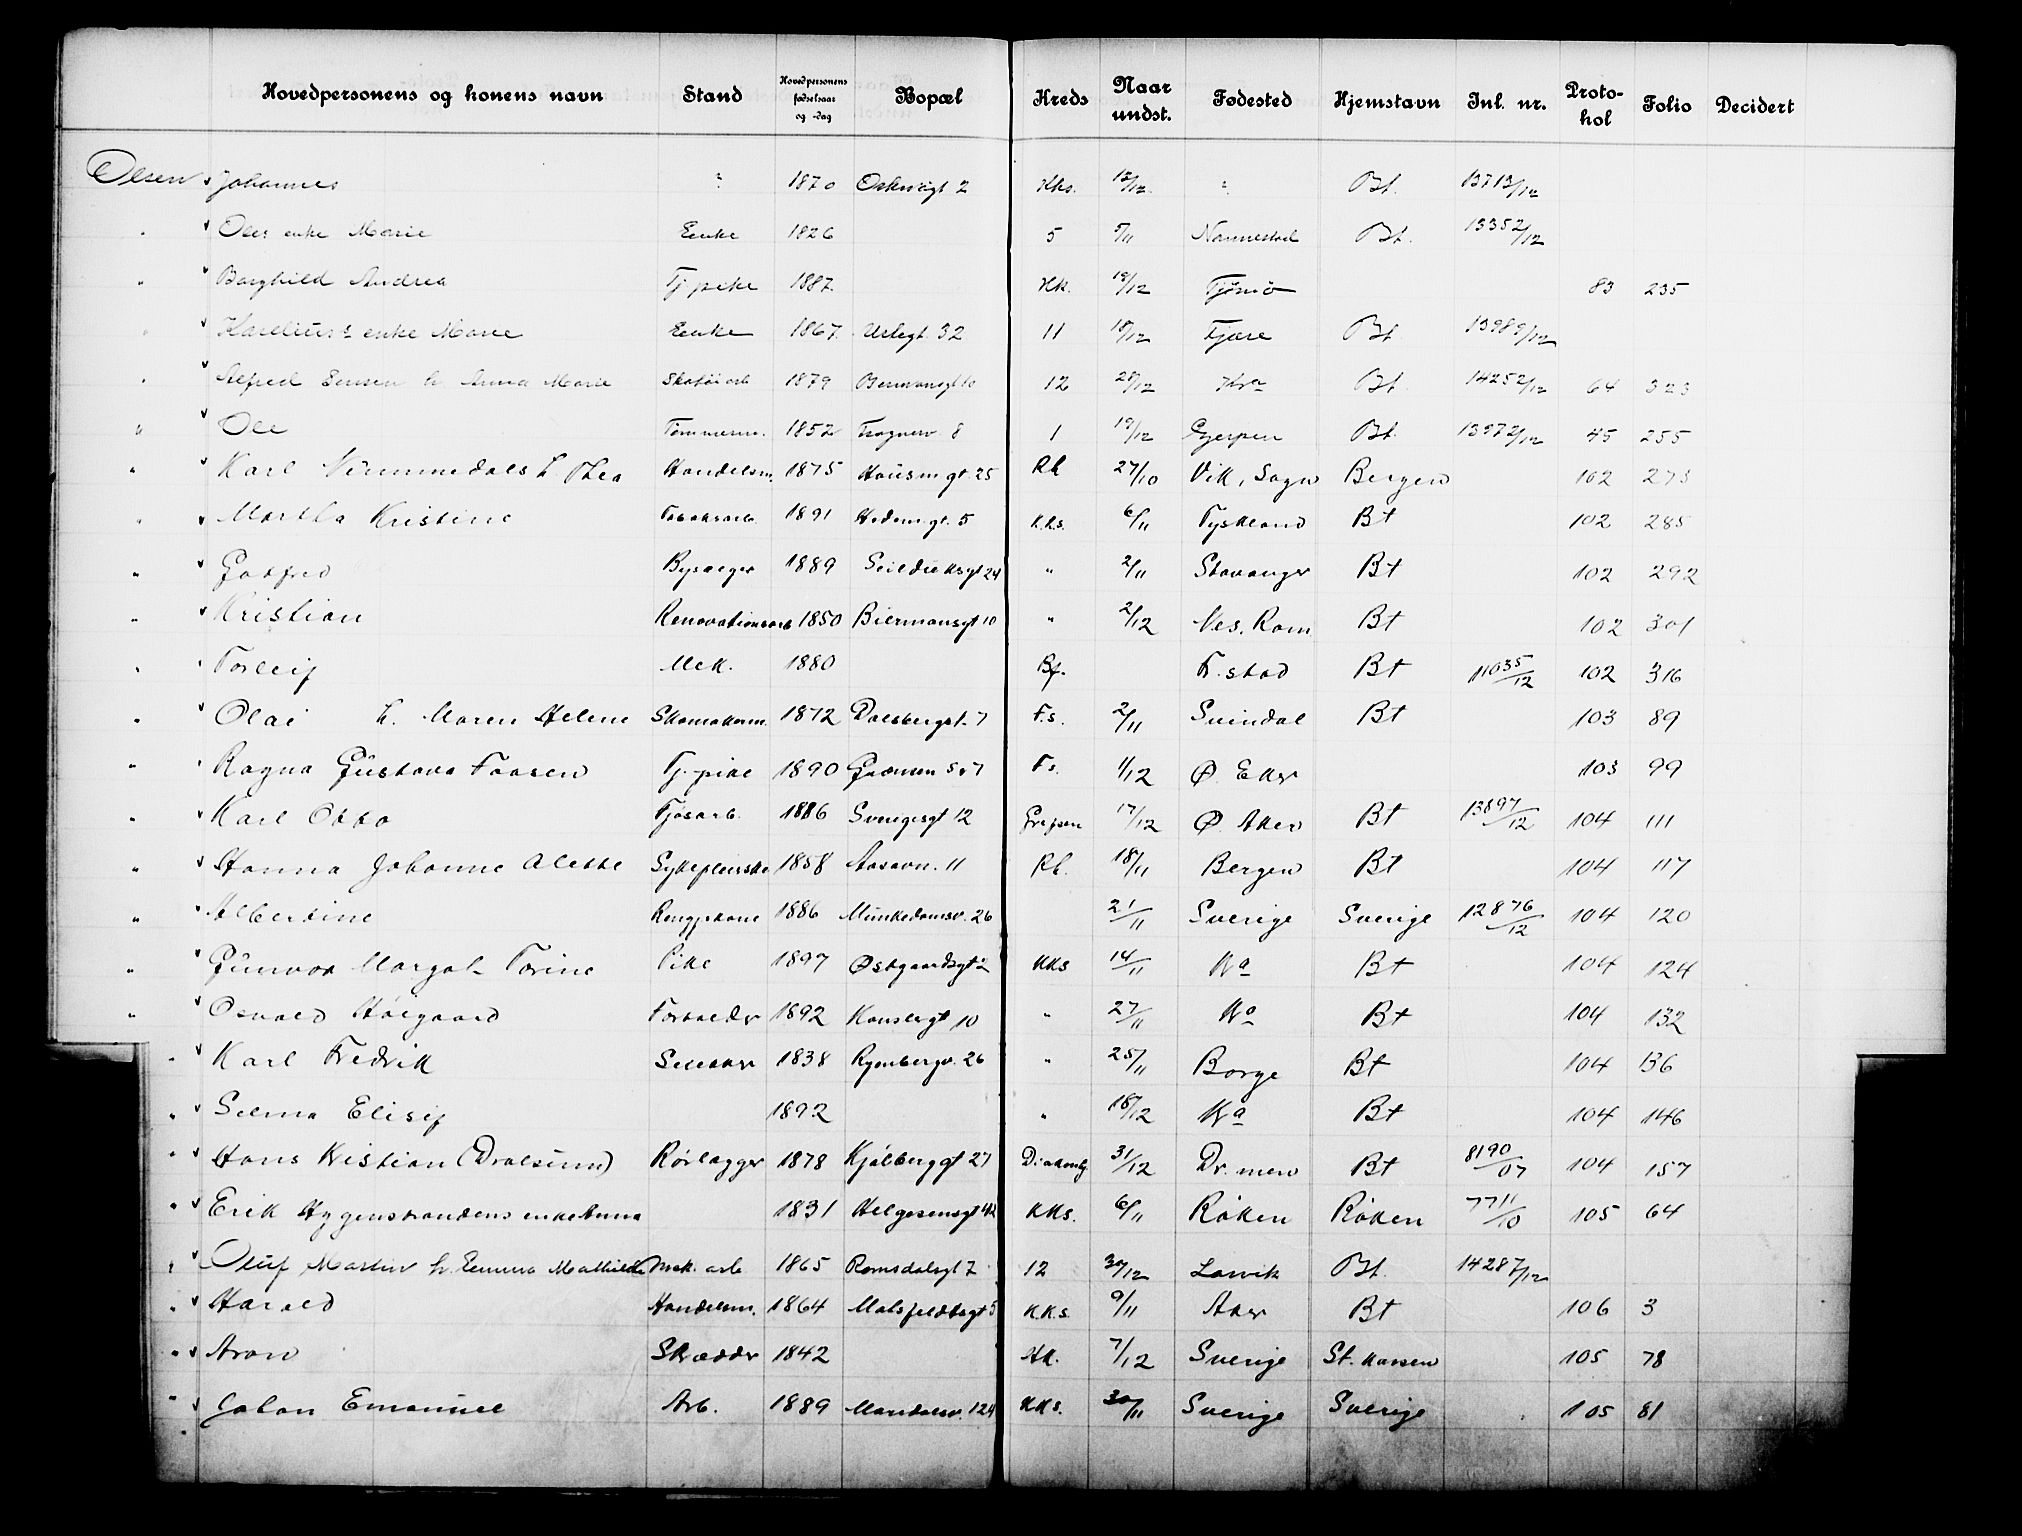 Hovedpersonens og konens navn | Stand | Hovedpersonens fødselsaar og -dag | Bopæl | Kreds | Naar undst. | Fødested | Hjemstavn | Inl. nr. | Protokol | Folio | Decidert
Olsen Johannes | ? | 1870 | Oskarsgt 2 | Kks. | 12/12 | ? | Bt. | 13713/12
" Oles enke Marie | Enke | 1826 | 5 | 5/11 | Nannestad | Bt. | 13352/12
" Borghild Andrea | Tj.pike | 1887 | Kk. | 19/12 | Tjømø | 83 | 235
" Karelius's enke Marie | Enke | 1867 | Urtegt. 32 | 11 | 18/12 | Fjære | Bt. | 13989/12
" Alfred Jensen h. Anna Marie | Skotøiarb | 1879 | Biermansgt 10 | 12 | 28/12 | Kra | Bt. | 14252/12 | 64 | 323
" Ole | Tømmerm. | 1852 | Frognerv. 8 | 1 | 19/12 | Gjerpen | Bt. | 13972/12 | 45 | 255
" Karl h. Thea | Handelsm. | 1875 | Hausmgt. 25 | Rh | 27/10 | Vik, Sogn | Bergen | 102 | 273
" Martha Kristine | Tobaksarb. | 1891 | Hedemgt. 5 | K.k.s. | 6/11 | Tyskland | Bt | 102 | 285
" Gotfred | Bysaeger | 1889 | Seilduksgt 24 | " | 2/11 | Stavanger | Bt | 102 | 292
" Kristian | Renovationsarb | 1850 | Biermansgt 10 | " | 2/12 | Nes, Rom | Bt | 102 | 301
" Torleif | Mek. | 1880 | Bf. | F.stad | Bt | 11035/12 | 102 | 316
" Olai h. Maren Helene | Skomakerm. | 1872 | Dalsbergst. 7 | F.s. | 2/11 | Svindal | Bt | 103 | 89
" Ragna Gustava Faasen | Tj.pike | 1890 | | Fs. | 1/12 | Ø. Eker | 103 | 99
" Karl Otto | Fjøsarb. | 1886 | Svingesgt 12 | Gripsen | 17/12 | Ø. Aker | Bt | 13897/12 | 104 | 111
" Hanna Johanne Alette | Sykepleierske | 1858 | Aasavn. 11 | Rh. | 18/11 | Bergen | Bt | 104 | 117
" Albertine | Rengj.kone | 1886 | Munkedamsv. 26 | 21/11 | Sverige | Sverige | 12876/12 | 104 | 120
" Gunvor Margot Torine | Pike | 1897 | Østgaardsgt 2 | KKs | 14/11 | Kra | Bt | 104 | 124
" Osvald Høigaard | Forvalder | 1892 | Konslergt 10 | " | 27/11 | Kra | Bt | 104 | 132
" Karl Fredrik | Selesker | 1838 | Rynbergv. 26 | " | 25/11 | Borge | Bt | 104 | 136
" Selma Elisif | 1892 | " | 18/12 | Kra | Bt | 104 | 146
" Hans Kristian (Dralsunn) | Rørlægger | 1878 | Kjølberggt 27 | Diakonhj | 31/12 | Dr.men | Bt | 8190/07 | 104 | 157
" Erik Hygenstrandens enke Anna | 1831 | Helgesensgt 42 | KKs. | 6/11 | Røken | Røken | 7711/10 | 105 | 64
" Oluf Martin h. Emma Mathilde | Mek. arb. | 1865 | Romsdalsgt 7 | 12 | 30/12 | Larvik | Bt. | 14287/12
" Harald | Handelsm. | 1864 | Malsfeldtsgt 5 | K.K.s. | 9/11 | Aker | Bt | 106 | 3
" Aron | Skrædder | 1842 | Hk. | 7/12 | Sverige | | 105 | 78
" Johan Emanuel | Arb. | 1889 | Maridalsv. 124 | KKs. | 30/11 | Sverige | Sverige | 105 | 81